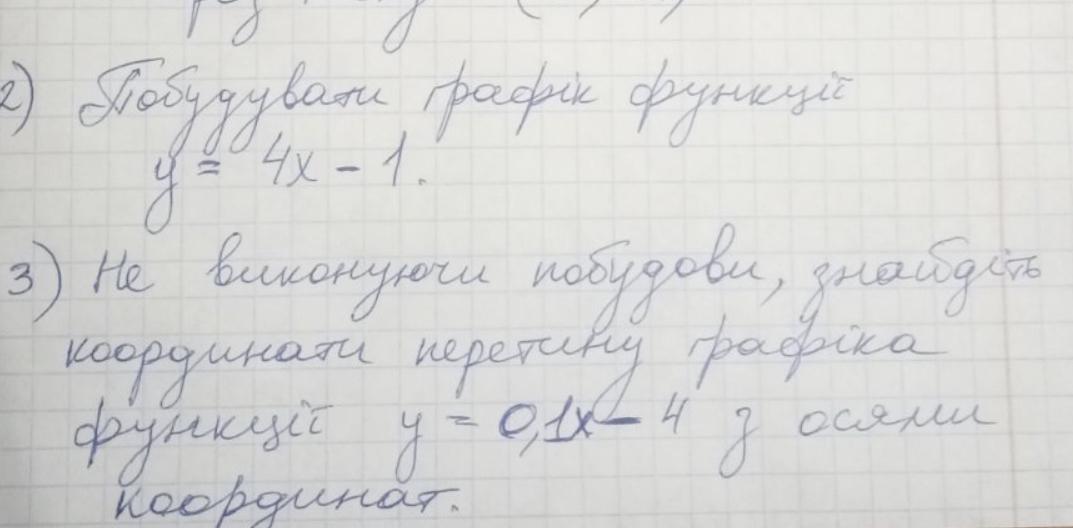 2) Побудувати графік функції
y = 4x - 1.
3) Не виконуючи побудови, знайдіть
координати перетину графіка
функції y = 0,1x - 4 з осями
координат.